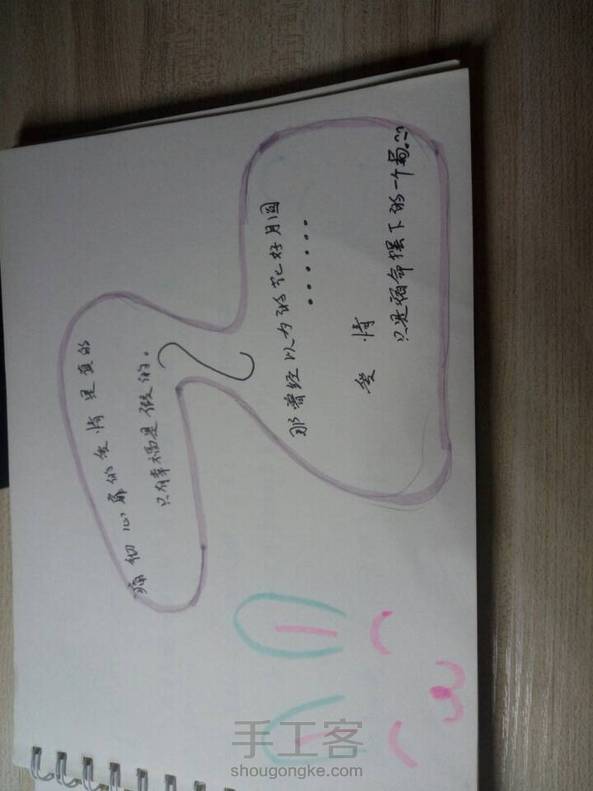 痛彻心扉的爱情是真的
只有幸福是假的。
那曾经以为的花好月圆
.......
爱情
只是宿命摆下的一个局.~
手工客
shougongke.com